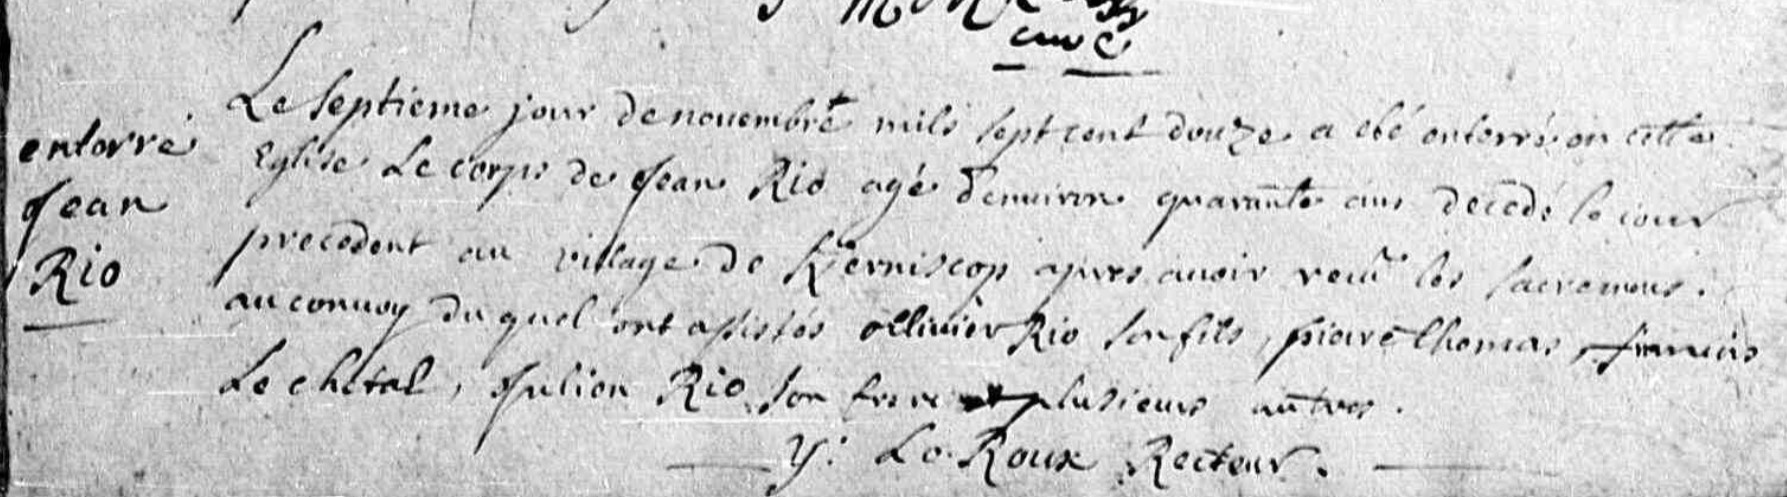 curé
Le septieme jour de novembre mils sept cent douze a eté enterré en cette
enterré
Eglise Le corps de Jean Rio agé d'environ quarante ans decedé le jour
Jean
precedent au village de Kerniscop apres avoir receu les sacremens.
Rio
au convoy du quel ont assistés ollivier Rio son fils, pierre thomas, francois
Le chetal, Julien Rio son frere et plusieurs autres.
y: Le Roux Recteur.